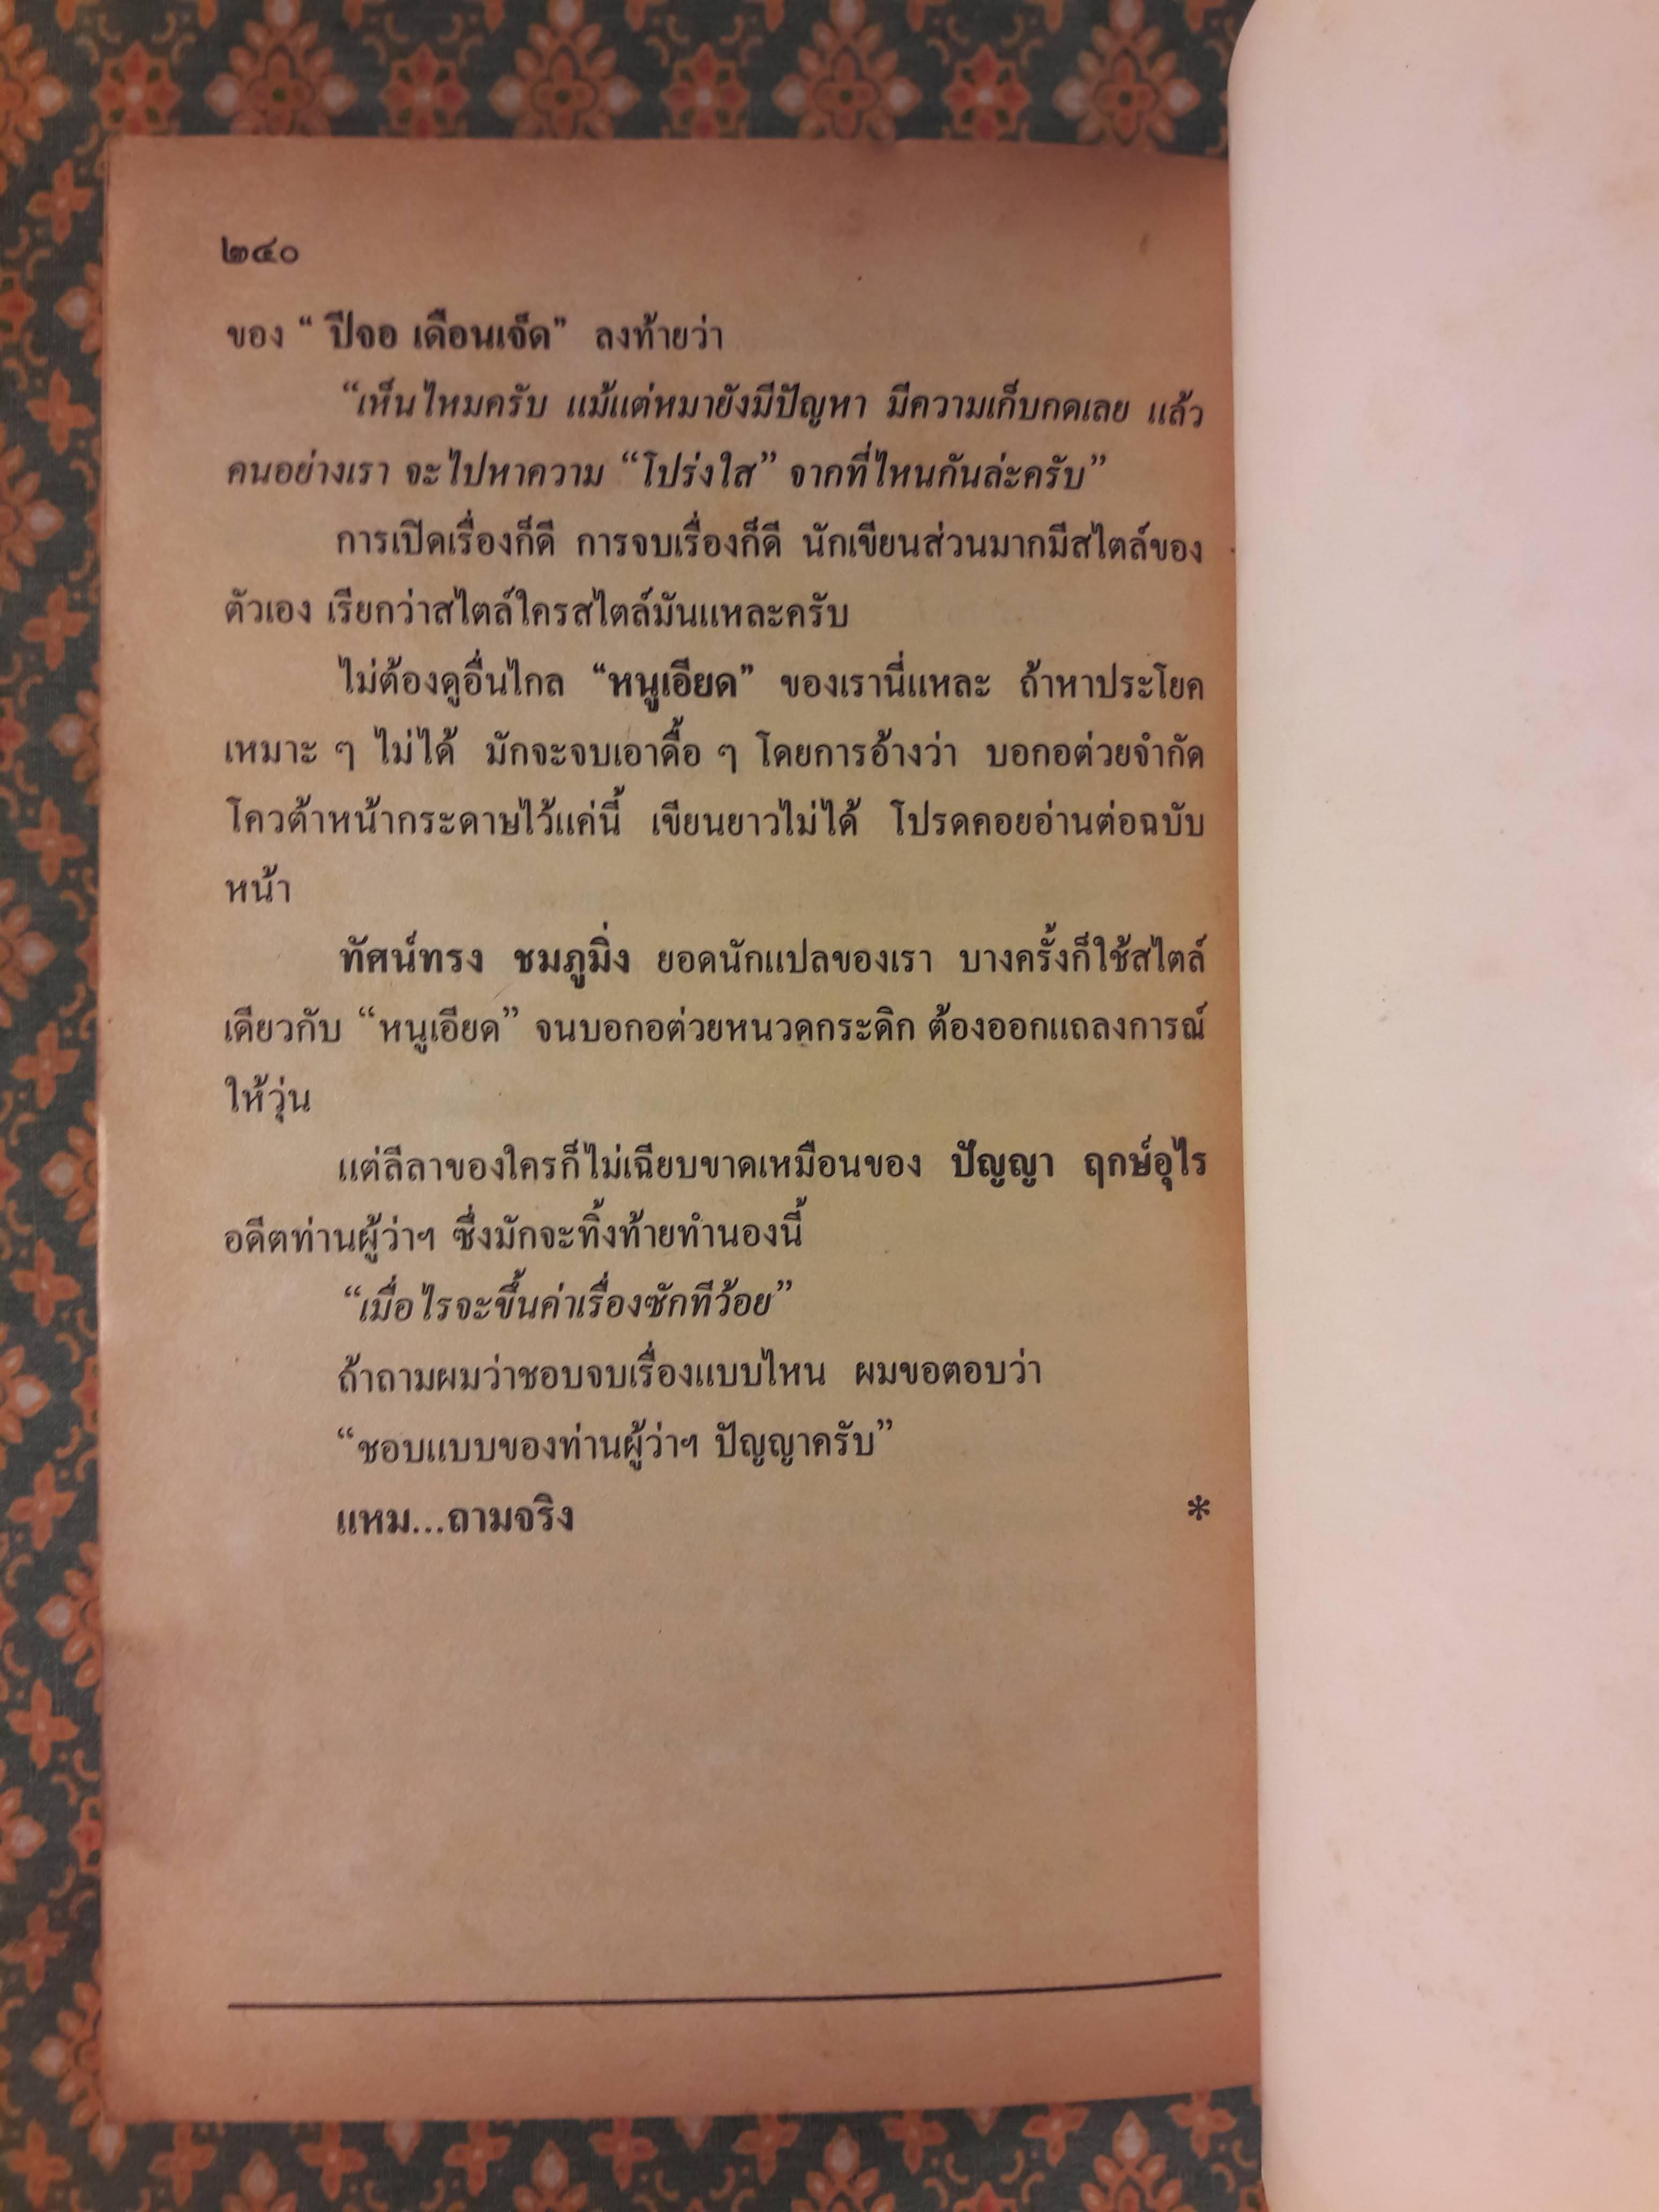 ๒๔๐
ของ “ ปีจอ เดือนเจ็ด” ลงท้ายว่า
“เห็นไหมครับ แม้แต่หมายังมีปัญหา มีความเก็บกดเลย แล้ว
คนอย่างเรา จะไปหาความ “โปร่งใส” จากที่ไหนกันล่ะครับ”
การเปิดเรื่องก็ดี การจบเรื่องก็ดี นักเขียนส่วนมากมีสไตล์ของ
ตัวเอง เรียกว่าสไตล์ใครสไตล์มันแหละครับ
ไม่ต้องดูอื่นไกล “หนูเอียด” ของเรานี่แหละ ถ้าหาประโยค
เหมาะ ๆ ไม่ได้ มักจะจบเอาดื้อ ๆ โดยการอ้างว่า บอกอต่วยจำกัด
โควต้าหน้ากระดาษไว้แค่นี้ เขียนยาวไม่ได้ โปรดคอยอ่านต่อฉบับ
หน้า
ทัศน์ทรง ชมภูมิ่ง ยอดนักแปลของเรา บางครั้งก็ใช้สไตล์
เดียวกับ “หนูเอียด” จนบอกอต่วยหนวดกระดิก ต้องออกแถลงการณ์
ให้วุ่น
แต่ลีลาของใครก็ไม่เฉียบขาดเหมือนของ ปัญญา ฤกษ์อุไร
อดีตท่านผู้ว่าฯ ซึ่งมักจะทิ้งท้ายทำนองนี้
“เมื่อไรจะขึ้นค่าเรื่องซักทีว้อย”
ถ้าถามผมว่าชอบจบเรื่องแบบไหน ผมขอตอบว่า
“ชอบแบบของท่านผู้ว่าฯ ปัญญาครับ”
แหม...ถามจริง *